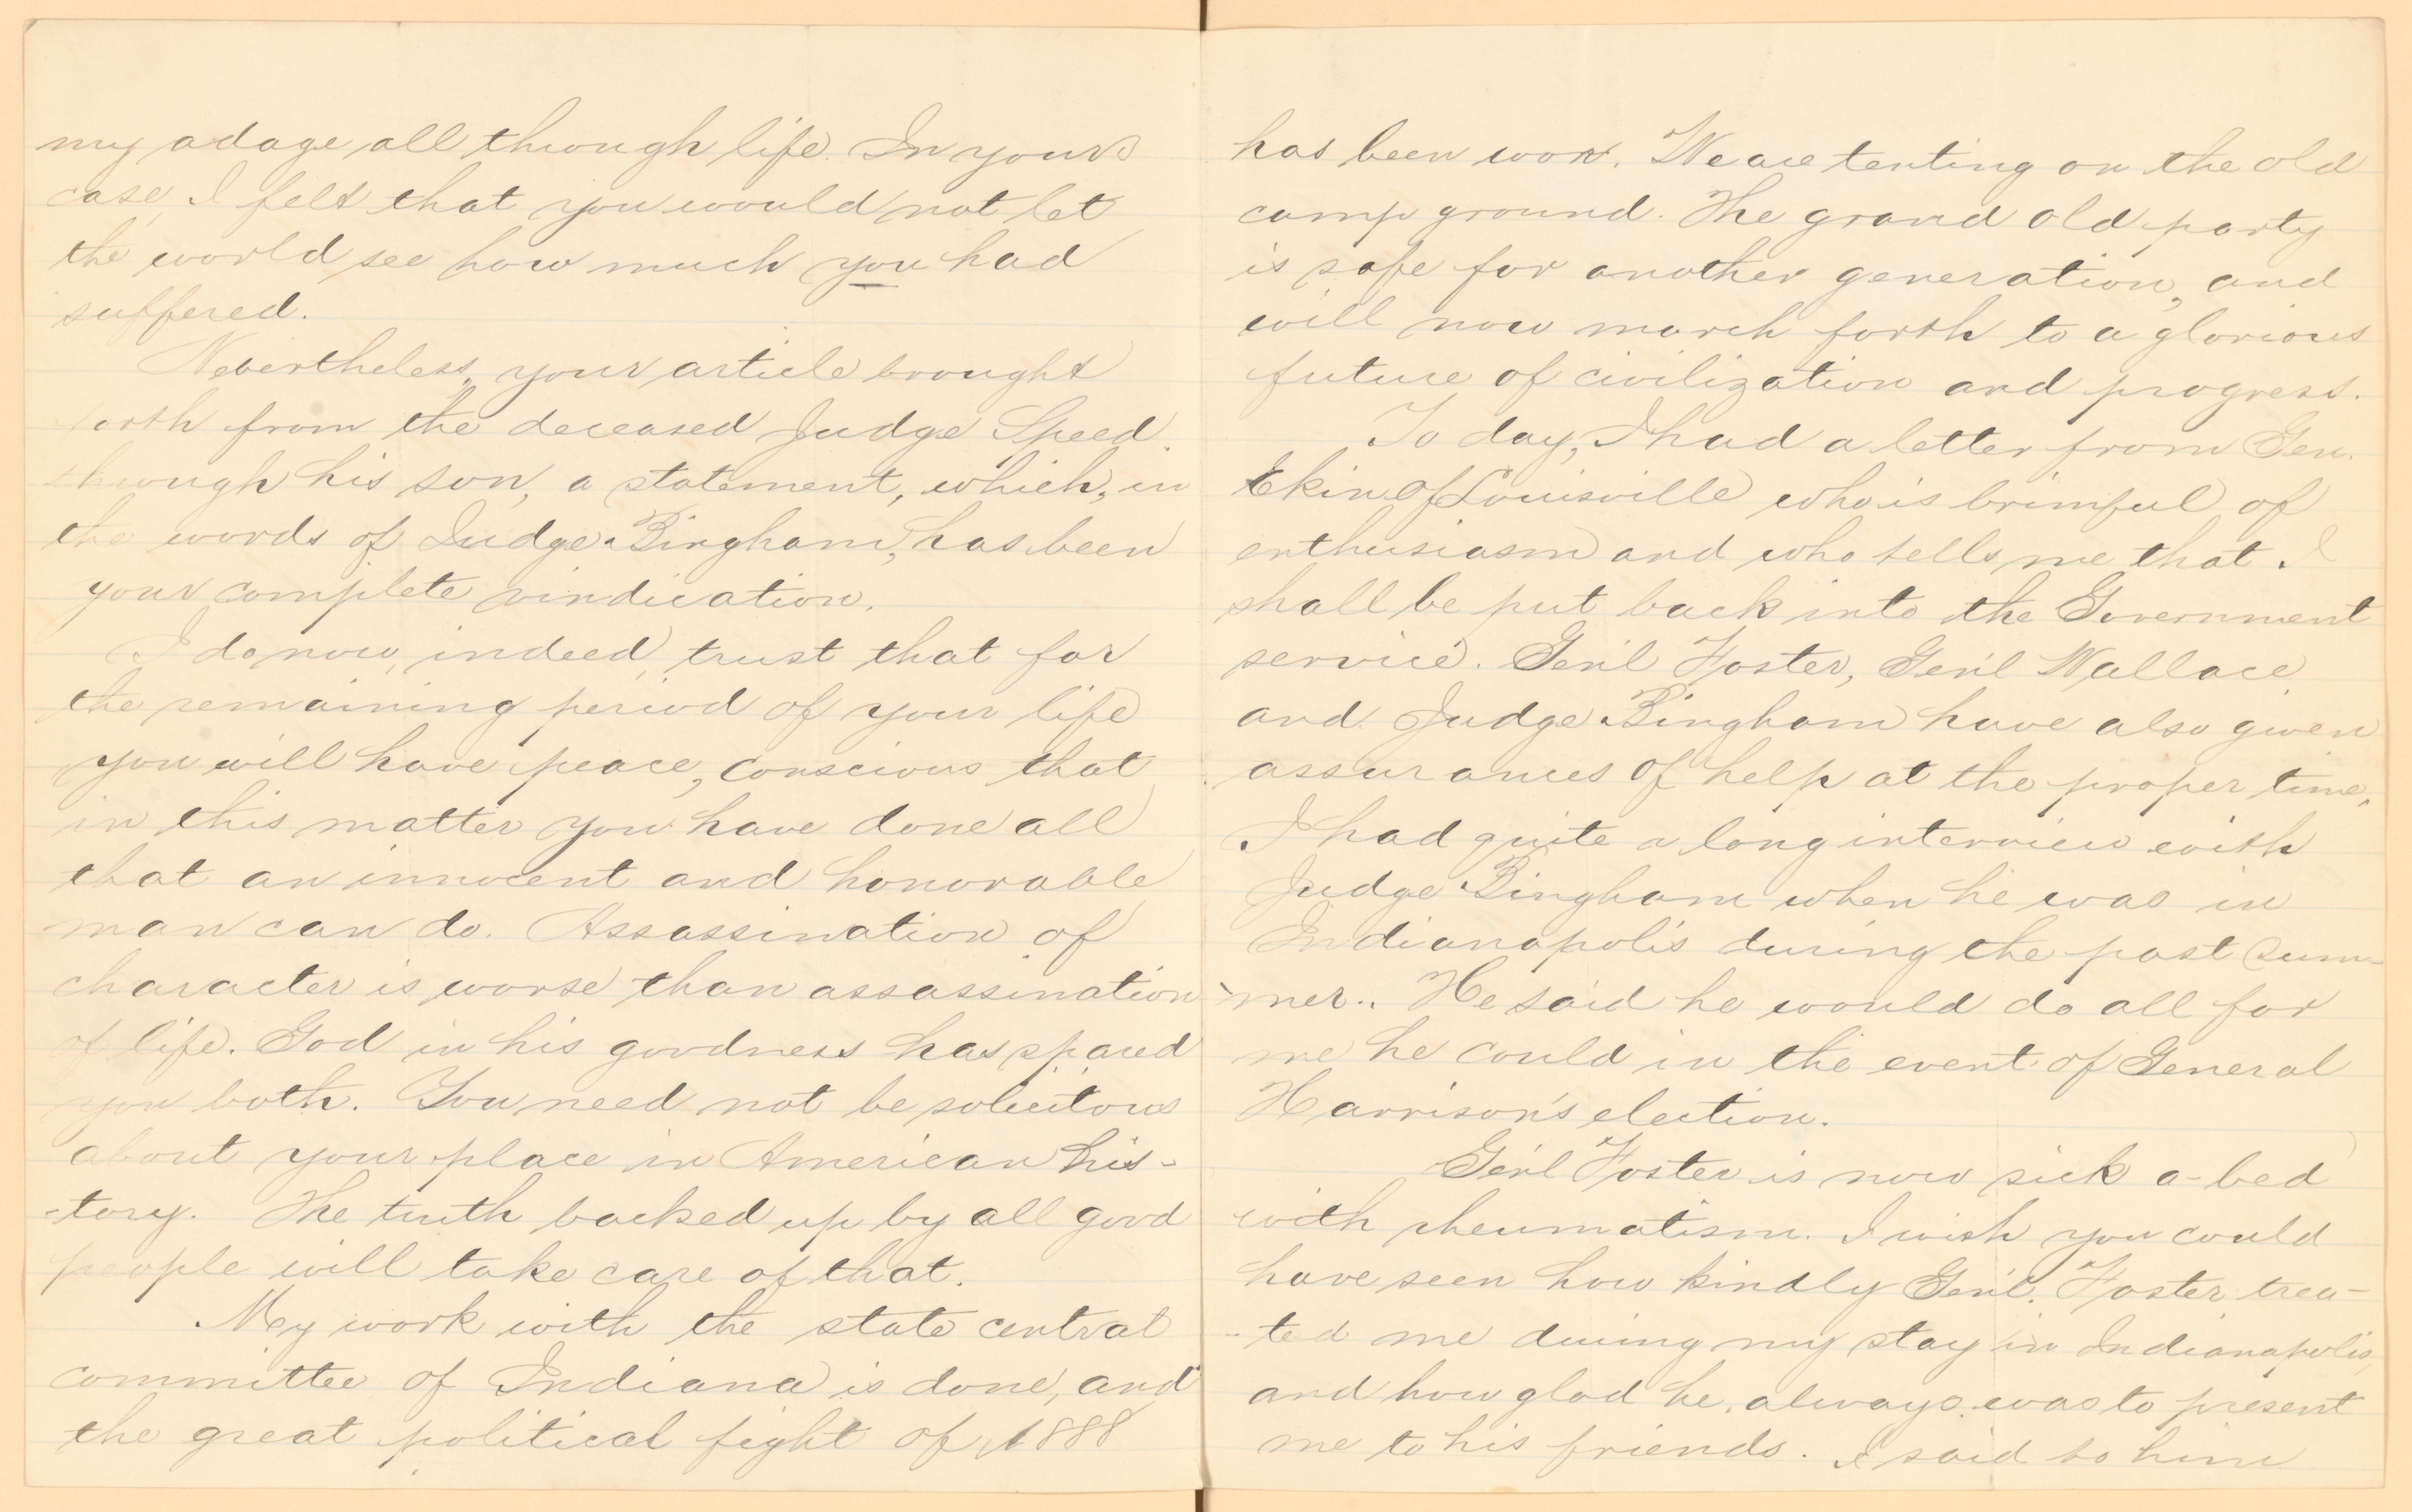 my adage all through life. In your
case, I felt that you would not let
the world see how much you had
suffered.
Nevertheless, your article brought
forth from the deceased Judge Speed.
through his son, a statement, which, in
the words of Judge Bingham, has been
your complete vindication.
I do now, indeed, trust that for
the remaining period of your life
you will have peace, conscious that
in this matter you have done all
that an innocent and honorable
man can do. Assassination of
character is worse than assassination
of life. God in his goodness has spared
you both. You need not be solicitous
about your place in American his-
-tory. The truth backed up by all good
people will take care of that.
My work with the state central
committee of Indiana is done, and
the great political fight of 1888
has been won. We are tenting on the old
camp ground. The grand old party
is safe for another generation, and
will now march forth to a glorious
future of civilization and progress.
To day, I had a letter from Gen.
Ekin of Louisville who is brimful of
enthusiasm and who tells me that I
shall be put back into the Government
service. Gen'l Foster, Gen'l Wallace
and Judge Bingham have also given
assurances of help at the proper time.
I had quite a long interview with
Judge Bingham when he was in
Indianapolis during the past sum-
-mer. He said he would do all for
me he could in the event of General
Harrison's election.
Gen'l Foster is now sick a-bed
with rheumatism. I wish you could
have seen how kindly Gen'l. Foster trea-
-ted me during my stay in Indianapolis,
and how glad he always was to present
me to his friends. I said to him